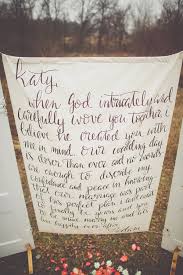 katy,
when God intricately and
carefully wove you together i
believe He created you with
me in mind. our wedding day
is closer than ever and no words
are enough to describe my
confidence and peace in knowing
that our marriage was part
of His perfect plan. i can't wait
to finally be yours and you
to be mine. marry me and let's
happily ever after.